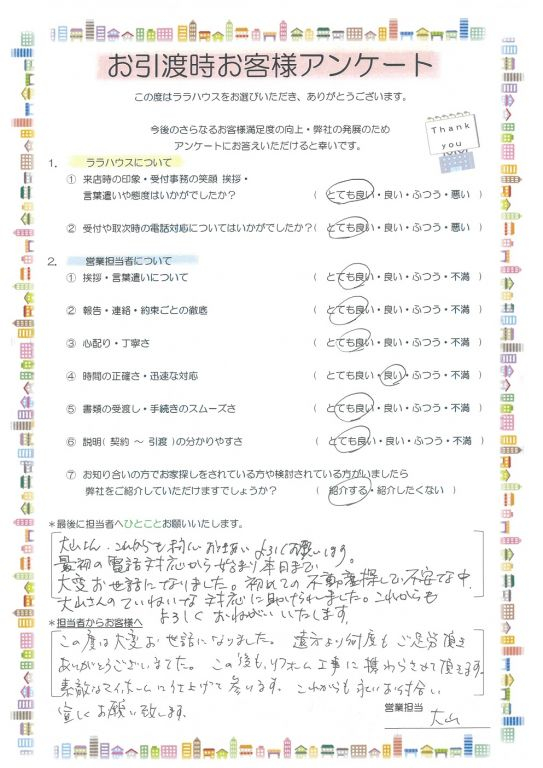 お引渡時お客様アンケート
この度はララハウスをお選びいただき、ありがとうございます。
今後のさらなるお客様満足度の向上・弊社の発展のため
アンケートにお答えいただけると幸いです。
Thank
you
1. ララハウスについて
① 来店時の印象・受付事務の笑顔 挨拶・
言葉遣いや態度はいかがでしたか? ( とても良い・良い・ふつう・悪い )
② 受付や取次時の電話対応についてはいかがでしたか?( とても良い・良い・ふつう・悪い )
2. 営業担当者について
① 挨拶・言葉遣いについて ( とても良い・良い・ふつう・不満 )
② 報告・連絡・約束ごとの徹底 ( とても良い・良い・ふつう・不満 )
③ 心配り・丁寧さ ( とても良い・良い・ふつう・不満 )
④ 時間の正確さ・迅速な対応 ( とても良い・良い・ふつう・不満 )
⑤ 書類の受渡し・手続きのスムーズさ ( とても良い・良い・ふつう・不満 )
⑥ 説明( 契約 ～ 引渡 )の分かりやすさ ( とても良い・良い・ふつう・不満 )
⑦ お知り合いの方でお家探しをされている方や検討されている方がいましたら
弊社をご紹介していただけますでしょうか? ( 紹介する・紹介したくない )
*最後に担当者へひとことお願いいたします。
大山さん、これからも末永いお付き合いよろしくお願いします。
最初の電話対応から始まり本日まで
大変お世話になりました。初めての不動産探しで不安な中、
大山さんのていねいな対応に助けられました。これからも
よろしくおねがいいたします。
*担当者からお客様へ
この度は大変お世話になりました。遠方より何度もご足労頂き
ありがとうございました。この後も、リフォーム工事に携わらさせて頂きます。
素敵なマイホームに仕上げて参います。これからも永いお付合い
宜しくお願い致します。
営業担当
大山